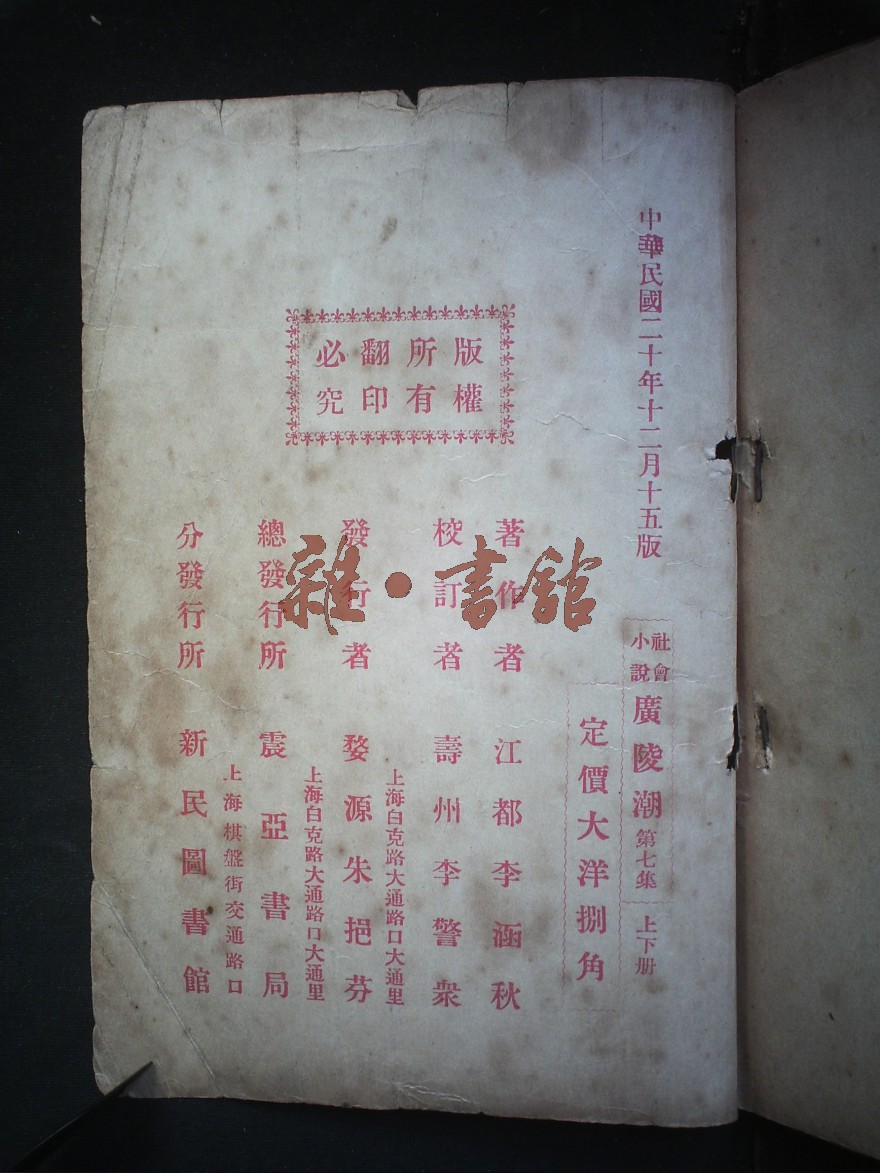 中華民國二十年十二月十五版
社會小說 廣陵潮 第七集 上下册
定價大洋捌角
版權所有翻印必究
著作者 江都李涵秋
校訂者 壽州李警衆
上海白克路大通路口大通里
發行者 婺源朱挹芬
上海白克路大通路口大通里
總發行所 震亞書局
上海棋盤街交通路口
分發行所 新民圖書館
雜·書館